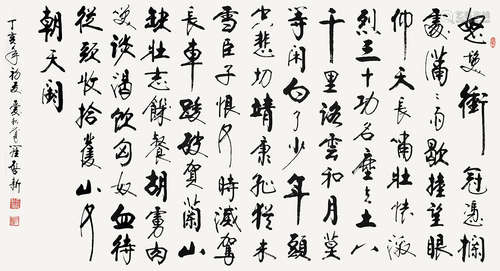 怒髮衝冠憑欄
處瀟々雨歇擡望眼
仰天長嘯壯懷激
烈三十功名塵与土八
千里路雲和月莫
等闲白了少年頭
空悲切靖康恥猶未
雪臣子恨何時滅駕
長車踏破賀蘭山
缺壯志饑餐胡虜肉
笑談渴飲匈奴血待
從頭收拾舊山河
朝天闕
丁亥年初夏